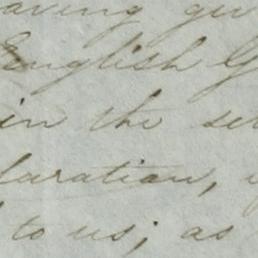 aving gu
English G
in the se
laration,
to us; as